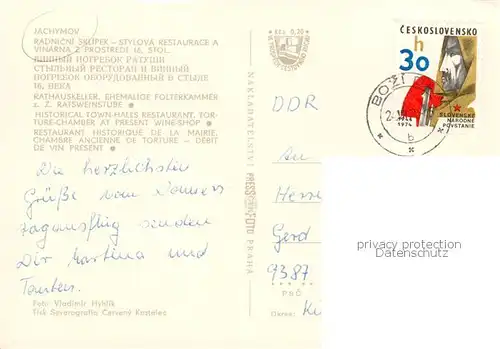 JÁCHYMOV
RADNIČNÍ SKLÍPEK – STYLOVÁ RESTAURACE A
VINÁRNA Z PROSTŘEDÍ 16. STOL.
ВИННЫЙ ПОГРЕБОК РАТУШИ
СТЫЛЬНЫЙ РЕСТОРАН И ВИННЫЙ
ПОГРЕБОК ОБОРУДОВАННЫЙ В СТЫЛЕ
16. ВЕКА
RATHAUSKELLER, EHEMALIGE FOLTERKAMMER
z. Z. RATSWEINSTUBE
HISTORICAL TOWN-HALLS RESTAURANT, TORTURE-CHAMBER AT PRESENT WINE-SHOP
RESTAURANT HISTORIQUE DE LA MAIRIE,
CHAMBRE ANCIENNE DE TORTURE – DÉBIT
DE VIN PRESENT
Die herzlichsten
Grüße vom
senden
Dir Martina und
Foto: Vladimír Hyhlík
Tisk Severografia Červený Kostelec
NAKLADATELSTVÍ PRESSFOTO PRAHA
Kčs 0,30
ČESKOSLOVENSKO
h
30
SLOVENSKÉ
NÁRODNÉ
POVSTANIE
1944
1974
BOŽÍ
b
DDR
An
Gerd
9387
PSČ
Okres:
copyright protected
Datenschutz